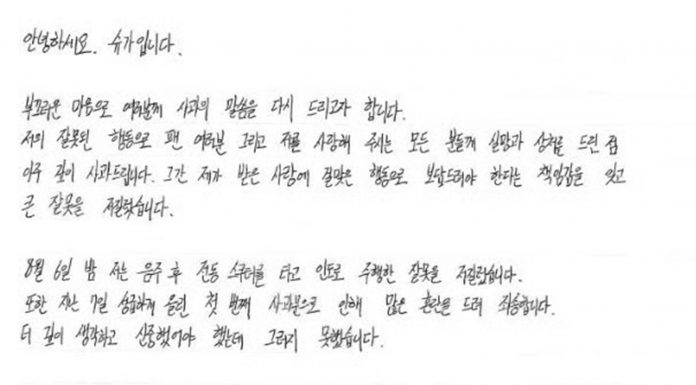 안녕하세요. 슈가입니다.
부끄러운 마음으로 여러분께 사과의 말씀을 다시 드리고자 합니다.
저의 잘못된 행동으로 팬 여러분 그리고 저를 사랑해 주시는 모든 분들께 실망과 상처를 드린 점
아주 깊이 사과드립니다. 그간 제가 받은 사랑에 걸맞은 행동으로 보답드려야 한다는 책임감을 잊고
큰 잘못을 저질렀습니다.
8월 6일 밤 저는 음주 후 전동 스쿠터를 타고 인도로 주행한 잘못을 저질렀습니다.
또한 지난 7일 성급하게 올린 첫 번째 사과문으로 인해 많은 혼란을 드려 죄송합니다.
더 깊이 생각하고 신중했어야 했는데 그러지 못했습니다.